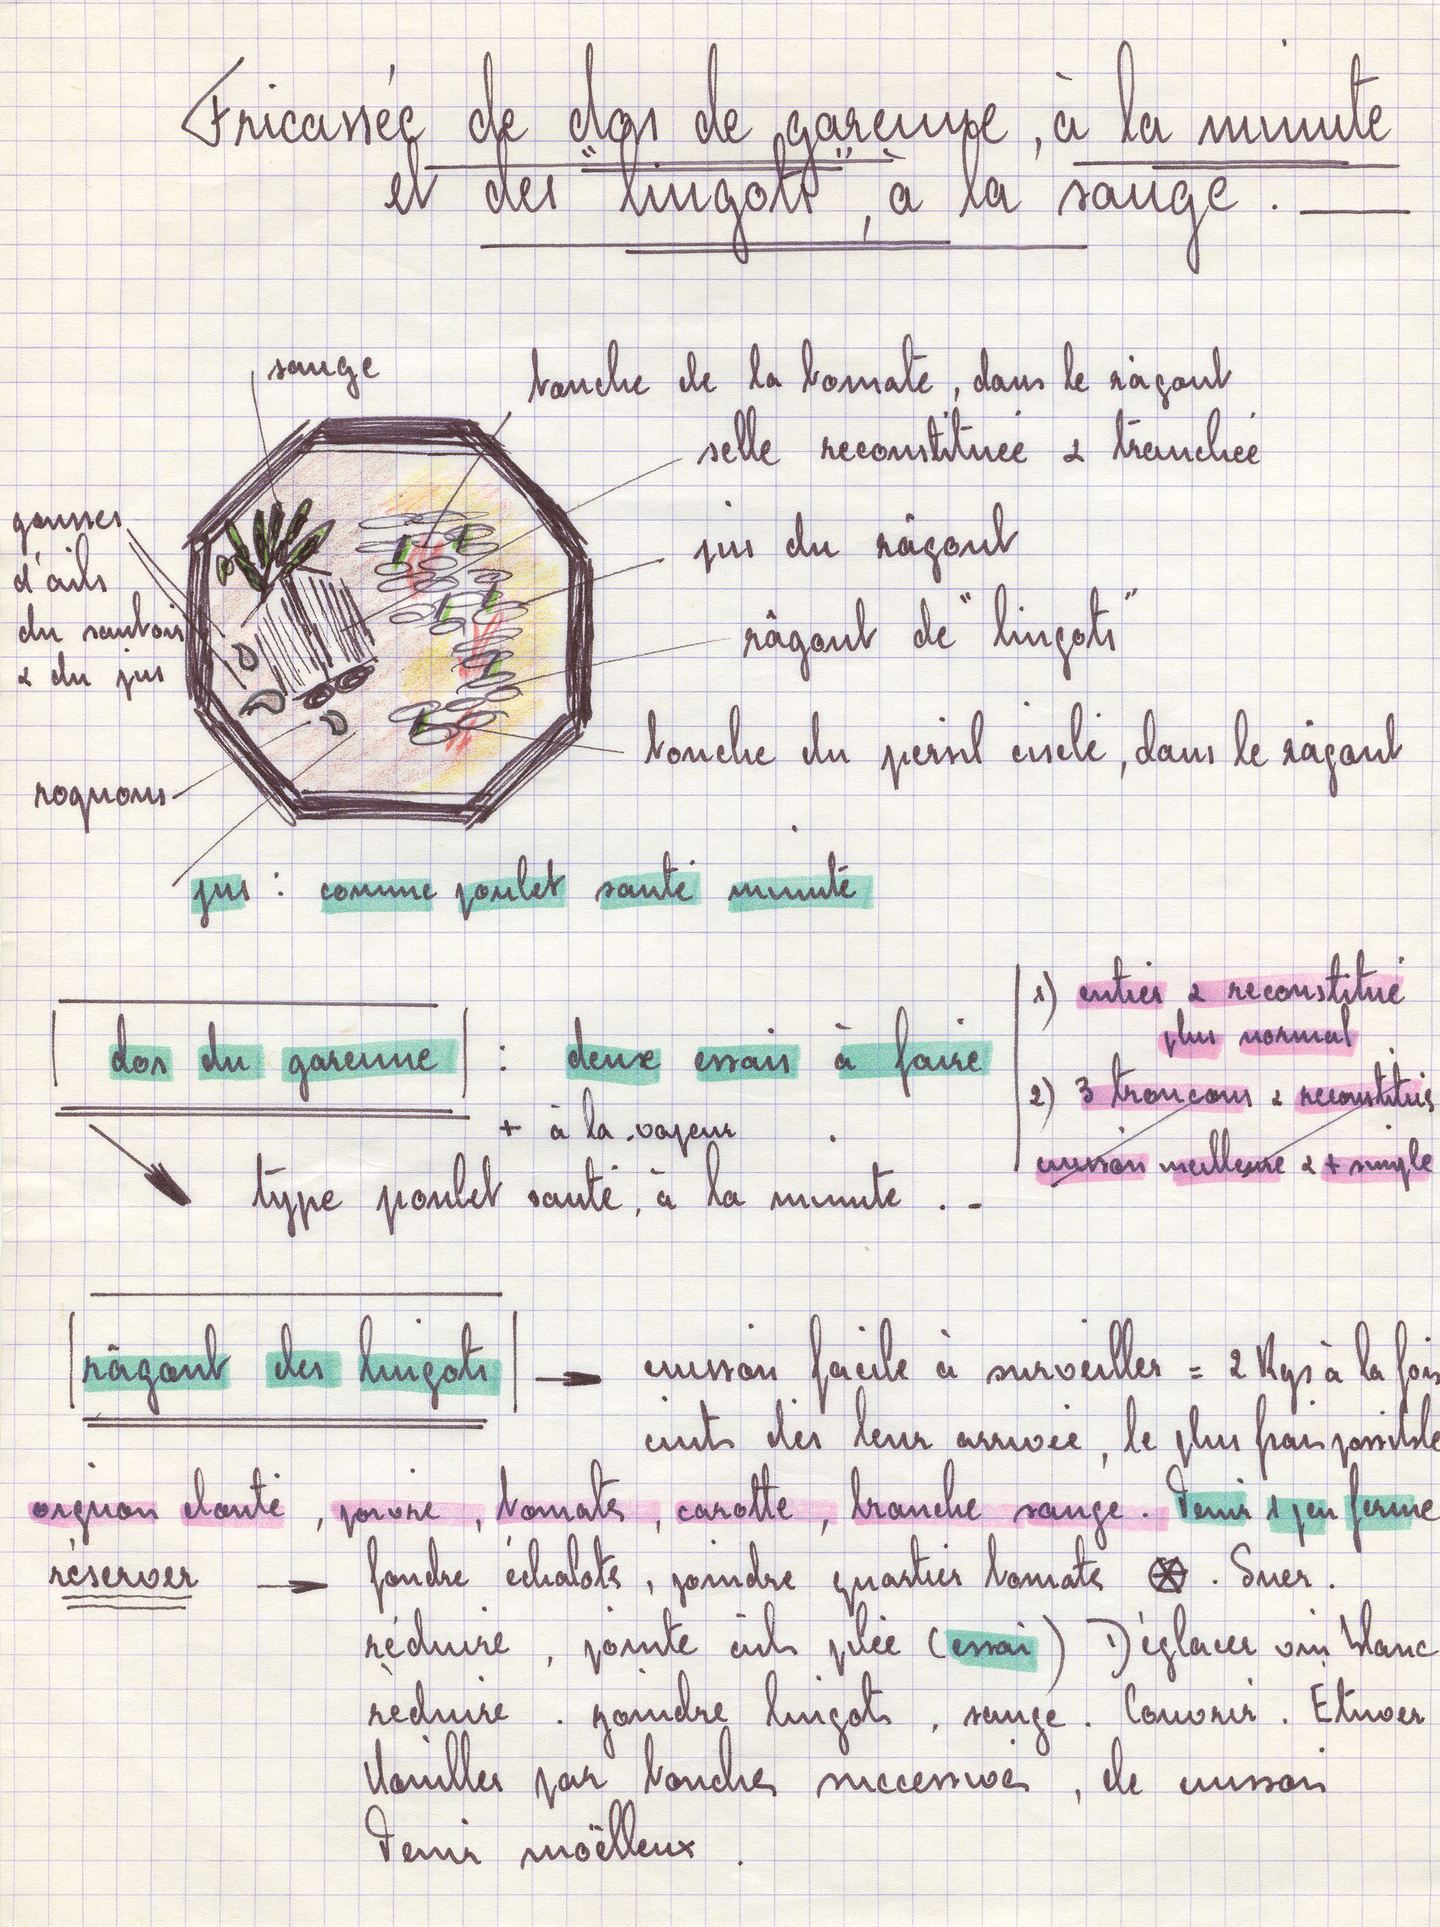 Fricassée de dos de garenne, à la minute
et des "lingots", à la sauge.
sauge
touche de la tomate, dans le râgout
selle reconstituée & tranchée
gousses
d'ails
du sautoir
& du jus
jus du râgout
râgout de "lingots"
touche du persil ciselé, dans le râgout
rognons
jus : comme poulet sauté minute
dos du garenne : deux essais à faire
+ à la vapeur
1) entier & reconstitué
plus normal
2) 3 troncons & reconstitués
cuisson meilleure & + simple
type poulet sauté, à la minute . -
râgout des lingots → cuisson facile à surveiller = 2 Kgs à la fois
cuits dès leur arrivée, le plus frais possible
oignon clouté, poivre, tomates, carotte, branche sauge. Tenir 1 peu ferme
réserver → fondre échalots, joindre quartier tomates . Suer.
réduire, pointe ails pilée (essai) Déglacer vin blanc
réduire. joindre lingots, sauge. Couvrir. Etuver
Mouiller par touches successives, de cuisson
Tenir moëlleux.